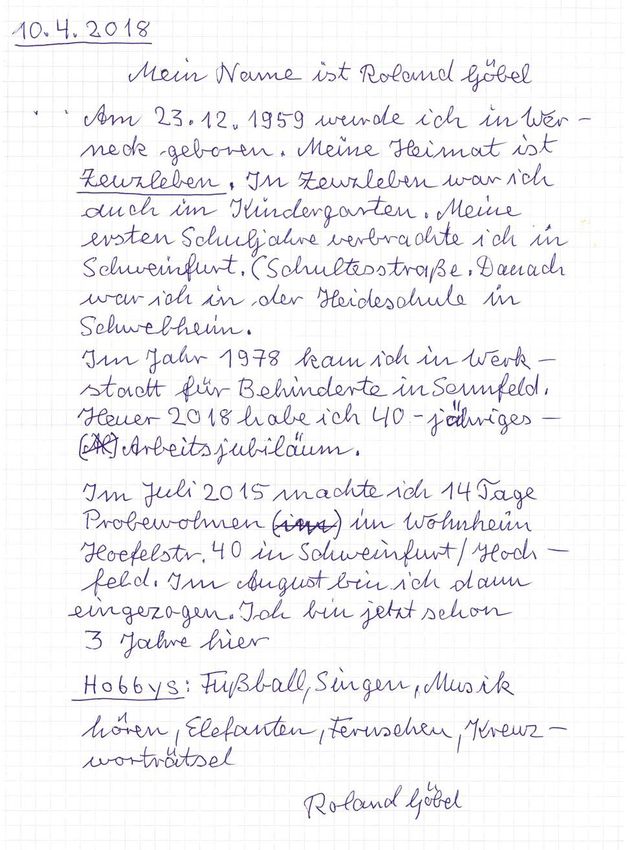 10.4.2018
Mein Name ist Roland Göbel
Am 23.12.1959 wurde ich in Wer-
neck geboren. Meine Heimat ist
Zeuzleben. In Zeuzleben war ich
auch im Kindergarten. Meine
ersten Schuljahre verbrachte ich in
Schweinfurt. (Schultesstraße. Danach
war ich in der Heideschule in
Schwebheim.
Im Jahr 1978 kam ich in Werk-
statt für Behinderte in Sennfeld.
Heuer 2018 habe ich 40-jähriges-
Arbeitsjubiläum.
Im Juli 2015 machte ich 14 Tage
Probewohnen (im) im Wohnheim
Hoefelstr. 40 in Schweinfurt/Hoch-
feld. Im August bin ich dann
eingezogen. Ich bin jetzt schon
3 Jahre hier
Hobbys: Fußball, Singen, Musik
hören, Elefanten, Fernsehen, Kreuz-
worträtsel
Roland Göbel